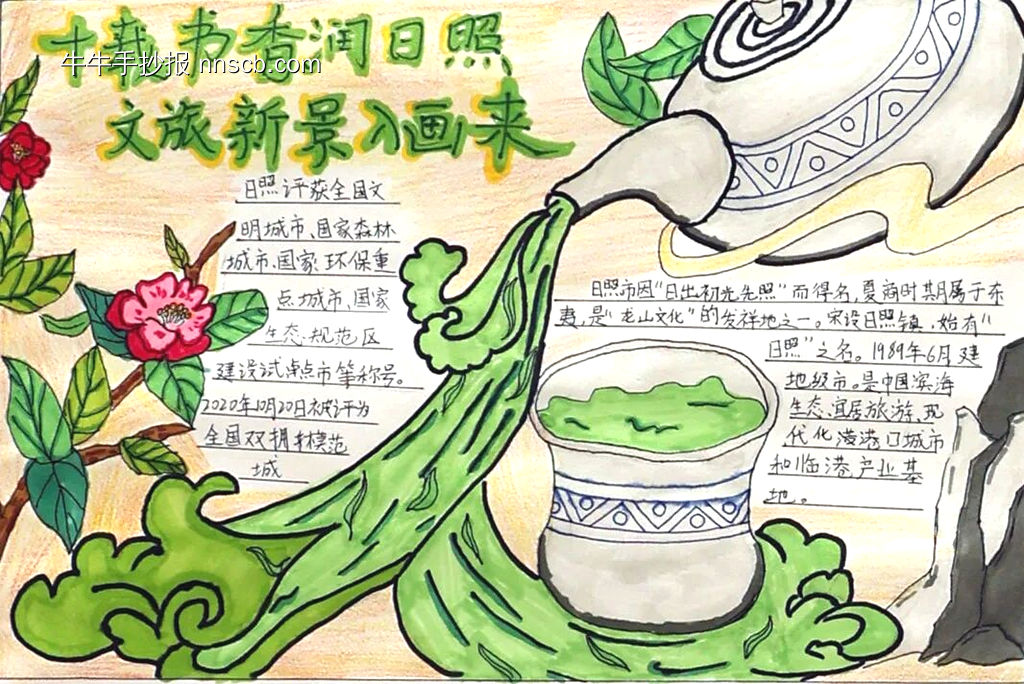 十载书香润日照
牛牛手抄报 nnscb.com
文旅新景入画来
日照评获全国文
明城市、国家森林
城市、国家环保重
点城市、国家
生态规范区
建设试点市等称号。
2020年10月20日被评为
全国双拥模范
城
日照市因“日出初光先照”而得名,夏商时期属于东
夷,是“龙山文化”的发祥地之一。宋设日照镇,始有“
日照”之名。1989年6月建
地级市。是中国滨海
生态、宜居旅游、现
代化港口城市
和临港产业基
地。